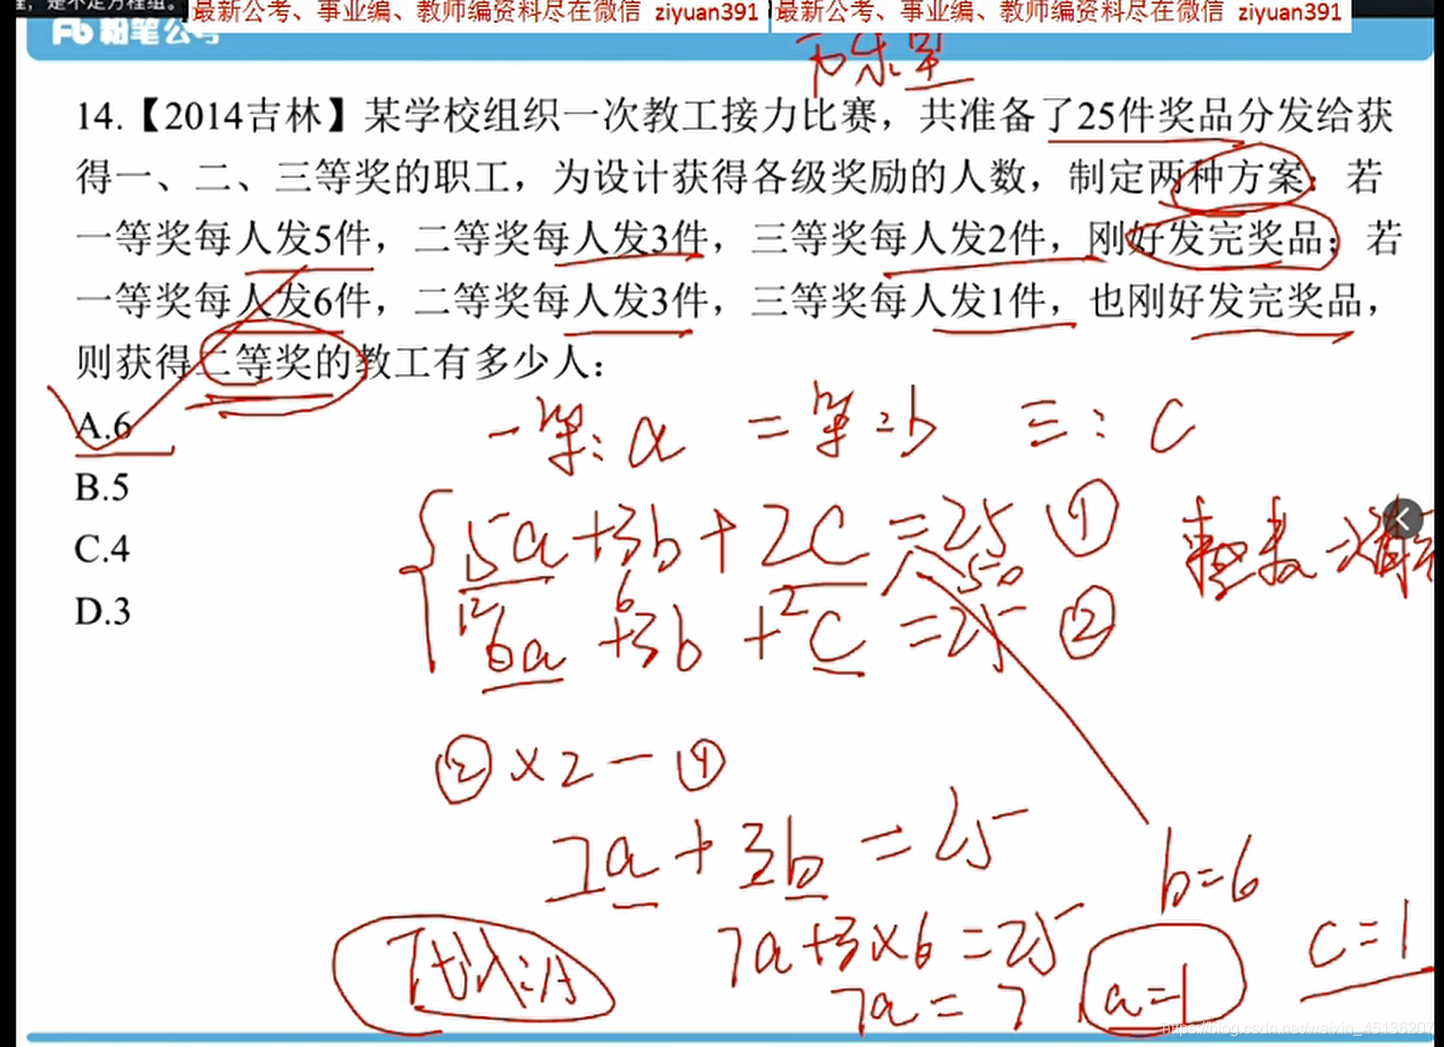 程，是不定方程组。
最新公考、事业编、教师编资料尽在微信 ziyuan391 最新公考、事业编、教师编资料尽在微信 ziyuan391
粉笔公考
14.【2014吉林】某学校组织一次教工接力比赛，共准备了25件奖品分发给获
得一、二、三等奖的职工，为设计获得各级奖励的人数，制定两种方案：若
一等奖每人发5件，二等奖每人发3件，三等奖每人发2件，刚好发完奖品；若
一等奖每人发6件，二等奖每人发3件，三等奖每人发1件，也刚好发完奖品，
则获得二等奖的教工有多少人：
A.6
B.5
C.4
D.3
一等：a 二等：b 三：c
5a+3b+2c=25 ①
12 6 2 50
6a+3b+c=25 ②
②×2-①
7a+3b=25
b=6
代入：A
7a+3×6=25
7a=7
a=1
c=1
https://blog.csdn.net/weixin_45136207